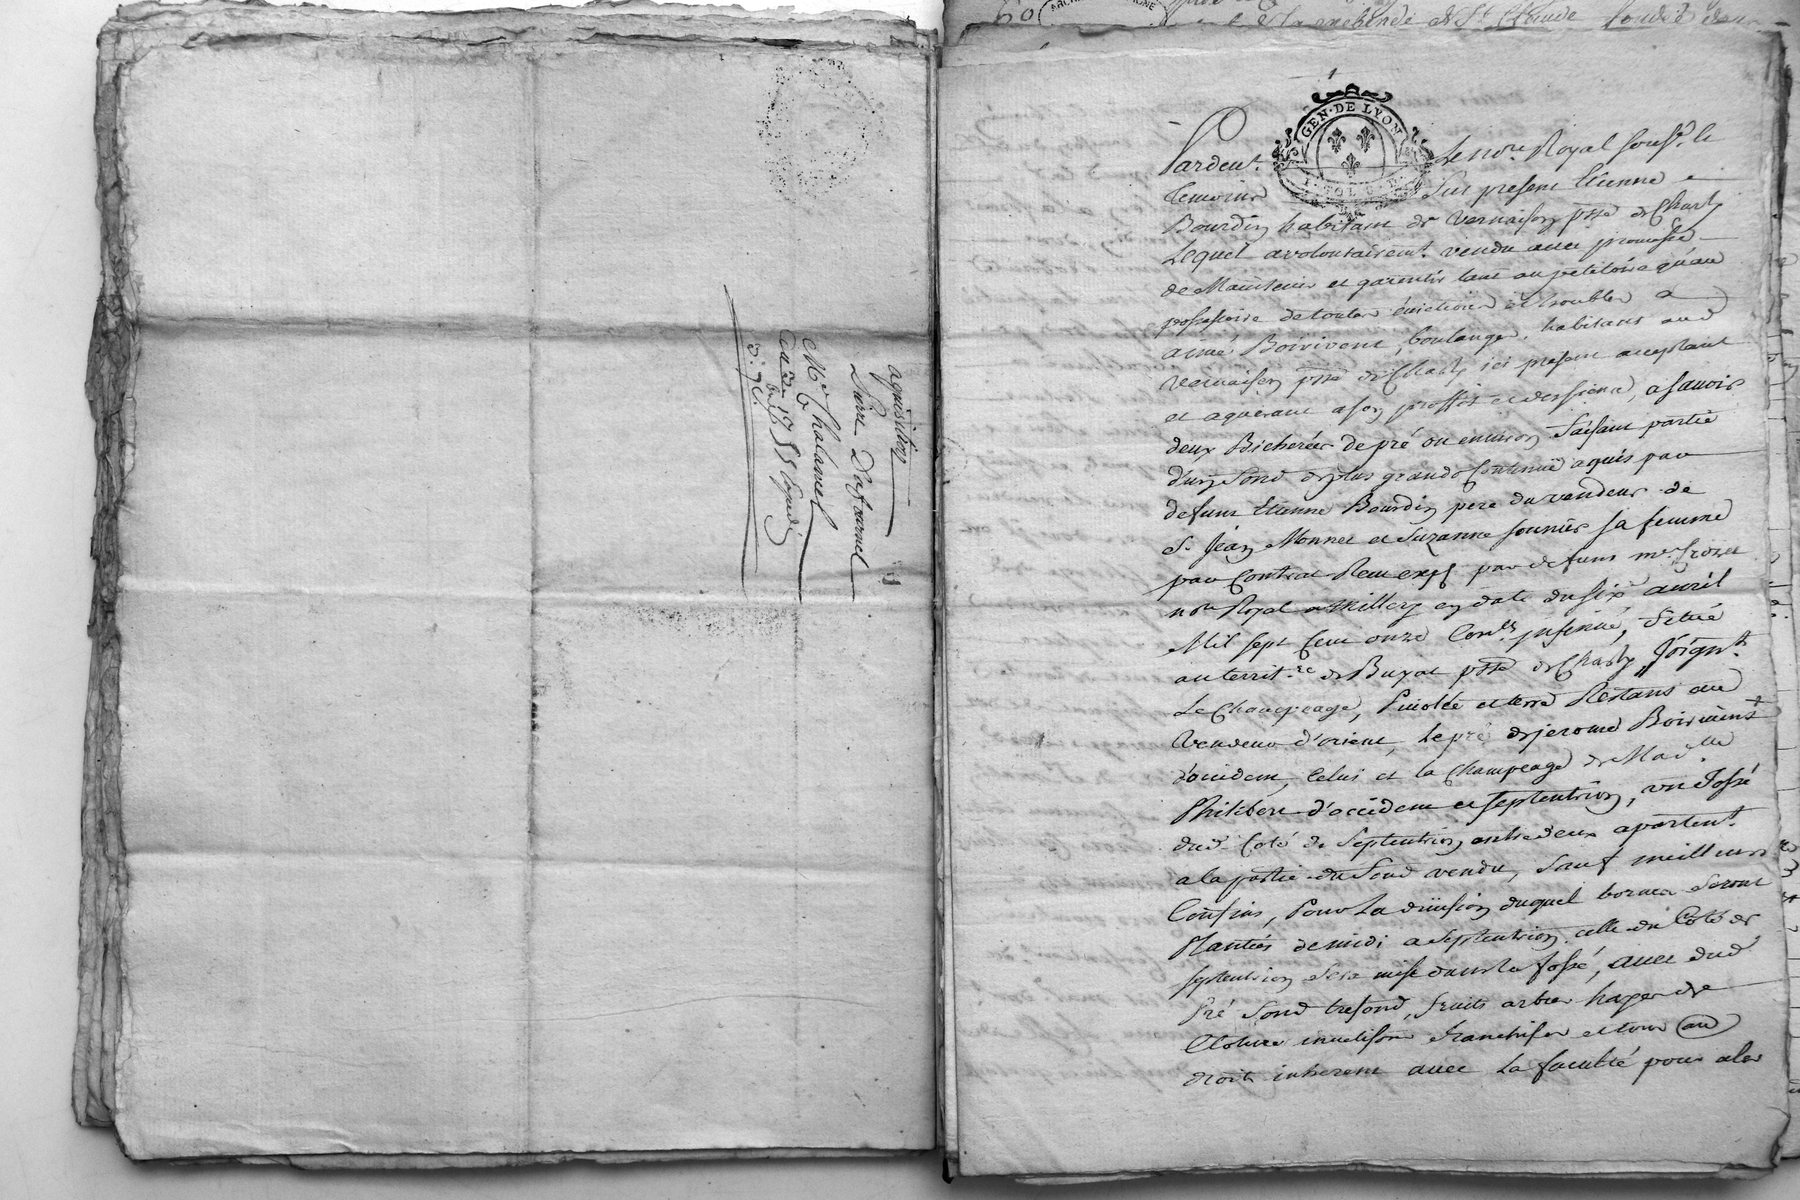 aquisition
Pierre Dufournel
Me Chalamel
1755
GEN·DE LYON
Pardevt. Le nore. Royal sousse. &
temoins Fut present Etienne
Bourdin habitant de Vernaison psse de Charly
Lequel a volontairemt. vendu avec promesse
de Maintenir et garentir tant au petitoire qu'au
possessoire de toutes évictions et troubles a
aimé Boirivent, boulanger. habitant aud
Vernaison psse de Charly ici present acceptant
et aquerant a son proffit et des siens, a savoir
deux Bicherées de pré ou environ faisant partie
d'un fond de plus grande Contenuë aquis par
defunt Etienne Bourdin pere du vendeur de
Sr. Jean Monnet et Suzanne founier sa femme
par Contrat Receu exps par defunt me.
nore Royal a Millery en date du six avril
Mil sept Cent onze Contlé jnsinué, Situé
au territ.re de Buyat psse de Charly, Joignt.
Le Champeage, et terre Restans au
Vendeur d'orient, le pré de jerome Boirivent
d'occident, Celui et la Champeage de Madlle
Philibert d'occident et septentrion, un fossé
dud. Coté de Septentrion entre deux apartent.
a la partie du fond vendu, sauf meilleurs
Confins, Pour La division duquel bornes seront
Plantées de midi a Septentrion. celle du Coté de
septentrion sera mise dans le fossé, avec dud
Pré fond trefond, fruits arbres hayes de
Cloture franchises et tous au
droits inherent avec la faculté pour aler